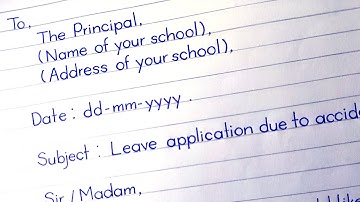 To,
The Principal,
(Name of your school),
(Address of your school),
Date : dd-mm-yyyy .
Subject : Leave application due to
Sir / Madam,